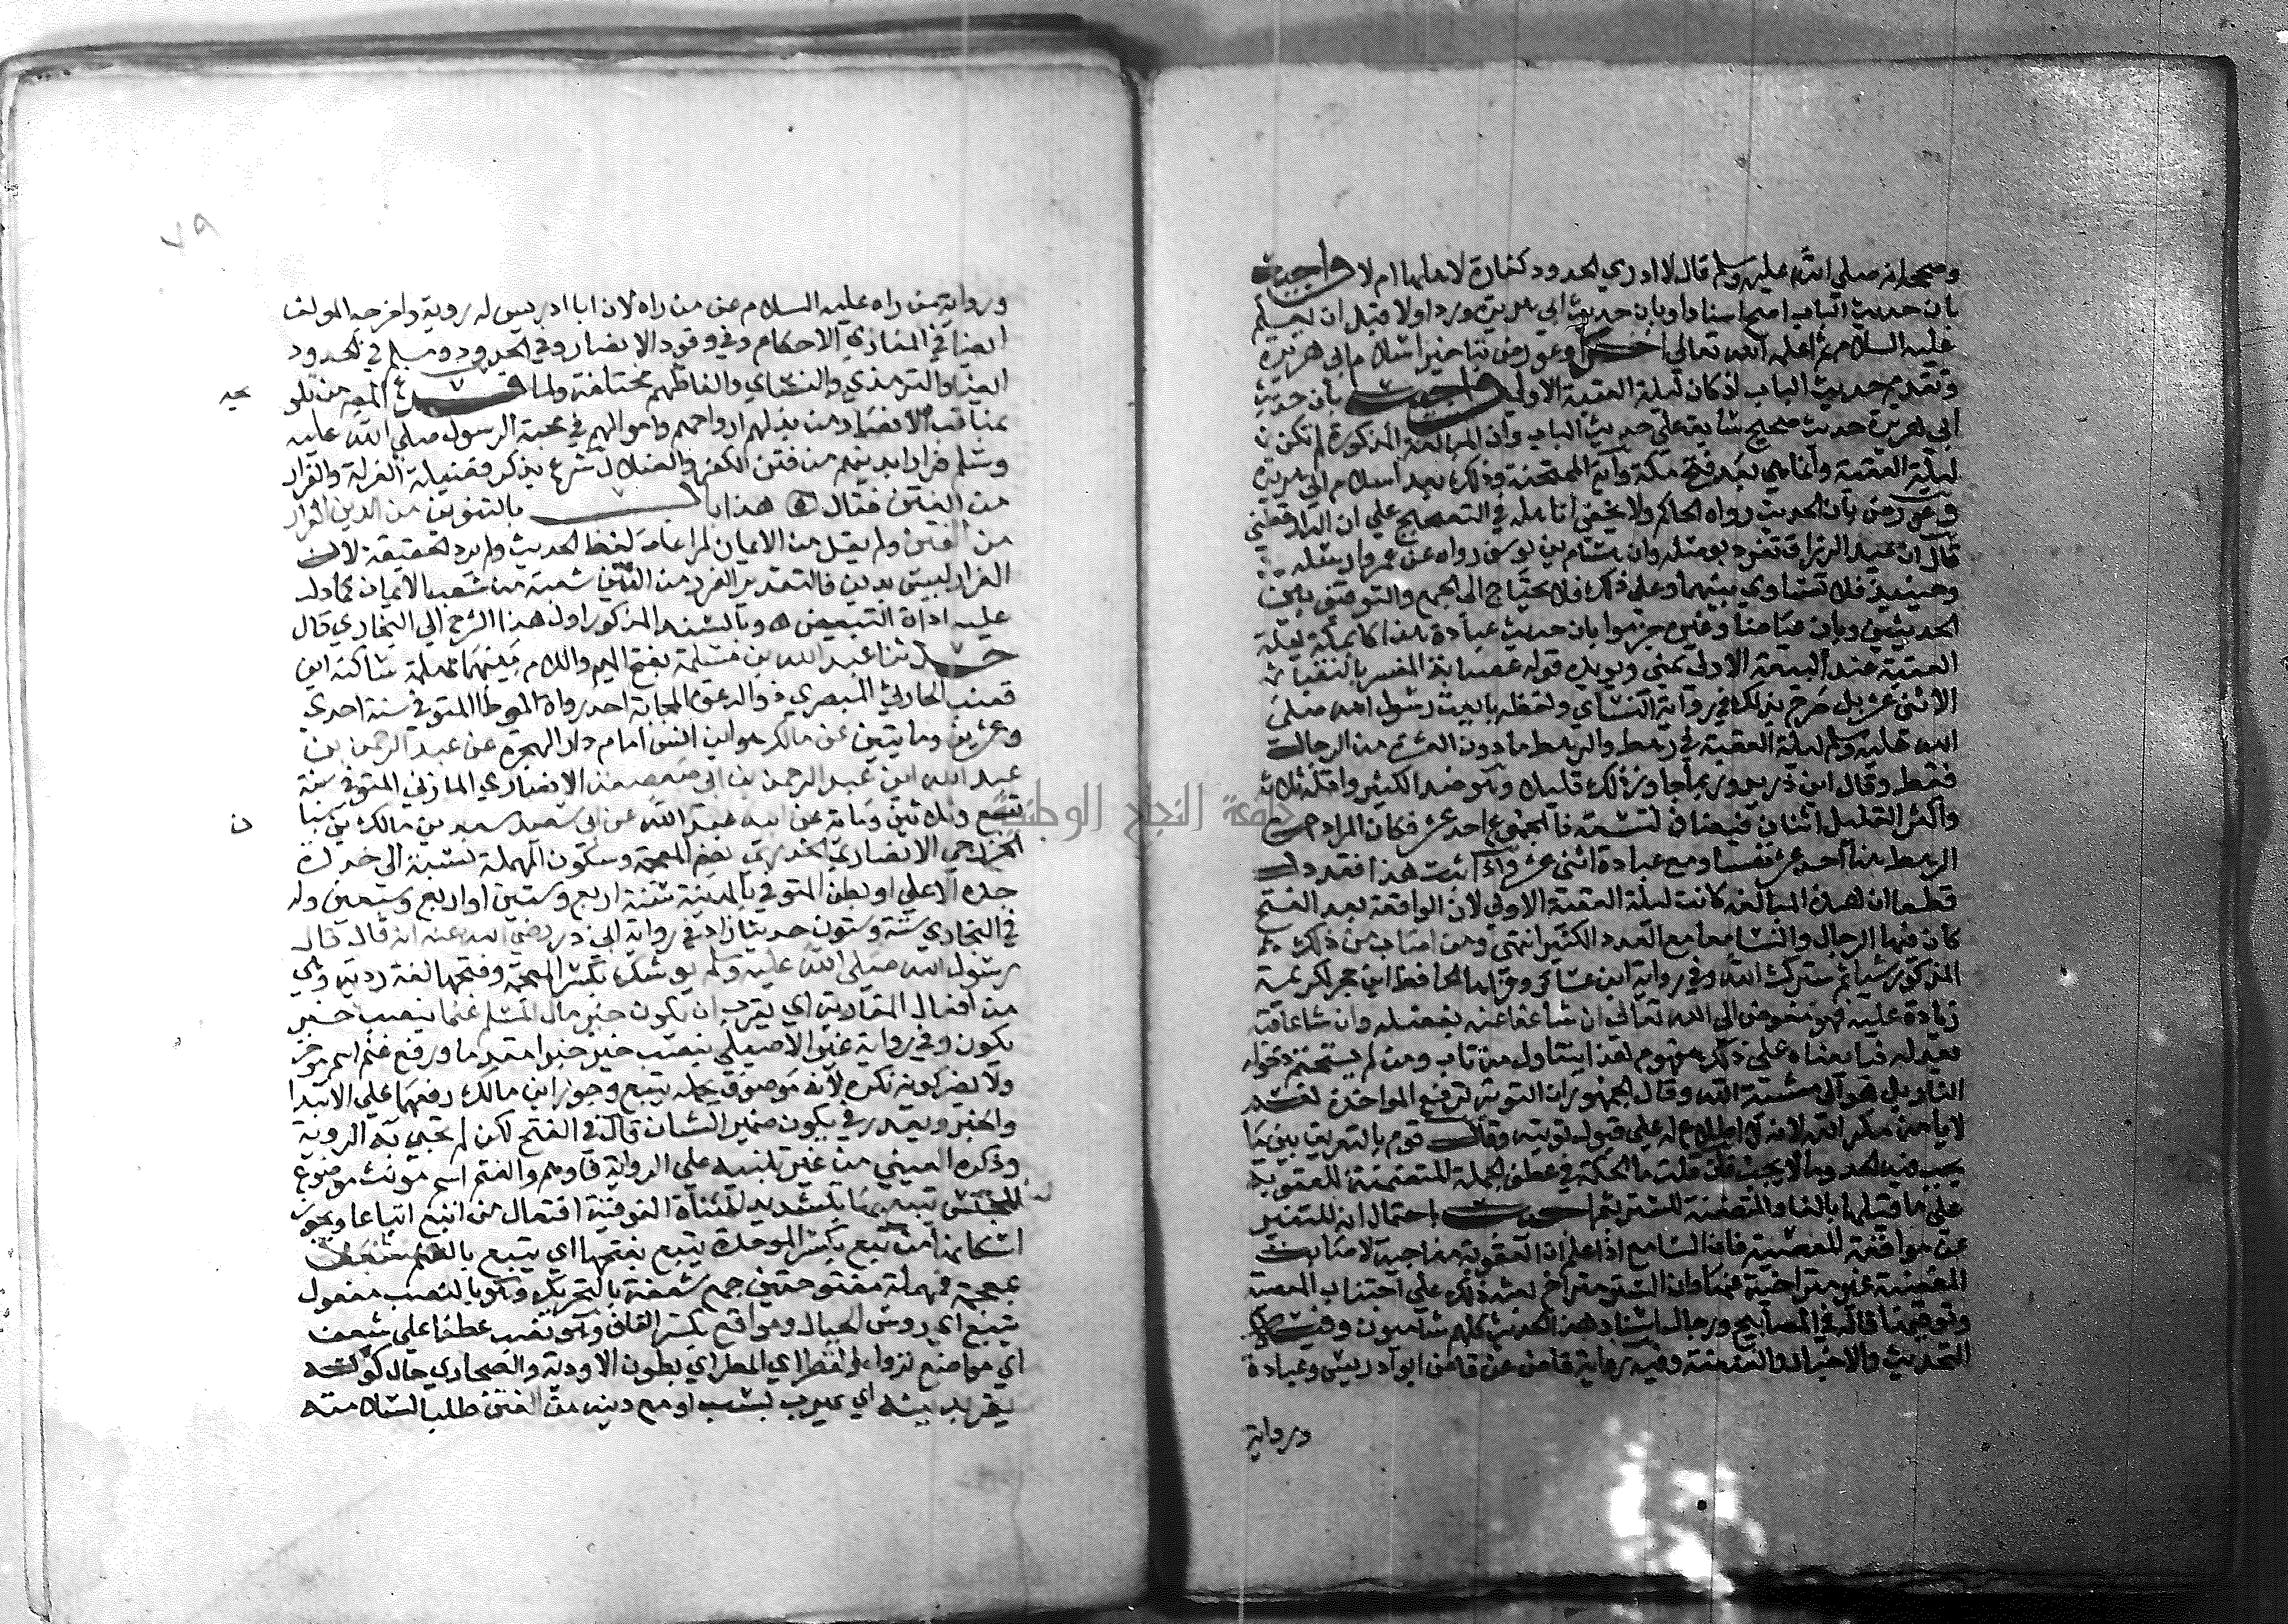 وصححه انه صلى الله عليه وسلم قال لا ادري الحدود كفارة لاهلها ام لا واجيب
بان حديث الباب اصح اسنادا وبان حديث ابي هريرة ورد اولا قبل ان يعلم
عليه السلام ثم اعلمه الله تعالى اخرا وعورض بتاخير اسلام ابي هريرة
وتقدم حديث الباب اذ كان ليلة العقبة الاولى واجيب بان حديث
ابي هريرة حديث صحيح سابق على حديث الباب وان المبايعة المذكورة لم تكن
ليلة العقبة وانما هي بعد فتح مكة واية الممتحنة وذلك بعد اسلام ابي هريرة
وعورض بان الحديث رواه الحاكم ولا يخفى تساهله في التصحيح على ان الدارقطني
قال ان عبد الرزاق تفرد بوصله وان هشام بن يوسف رواه عن معمر وارسله
وحينئذ فلا تساوي بينهما وعلى ذلك فلا يحتاج الى الجمع والتوفيق بين
الحديثين وبان عياضا وغيره جزموا بان حديث عبادة هذا كان بمكة ليلة
العقبة عند البيعة الاولى بمنى ويؤيده قوله عصابة المفسر بالنقباء
الاثني عشر بل صرح بذلك في رواية النساي ولفظه بايعت رسول الله صلى
الله عليه وسلم ليلة العقبة في رهط والرهط ما دون العشرة من الرجال
فقط وقال ابن دريد وربما جاوز ذلك قليلا وهو ضد الكثير واقله ثلاثة
واكثر القليل اثنان فيضاف لتسعة فالمجموع احد عشر فكان المراد من
الرهط هنا احد عشر نفسا ومع عبادة اثني عشر واذا ثبت هذا فقد دل
قطعا ان هذه المبايعة كانت ليلة العقبة الاولى لان الواقعة بعد الفتح
كان فيها الرجال والنساء معا مع العدد الكثير انتهى ومن اصاب من ذلك
المذكور شيا ثم ستره الله وفي رواية ابن عساكر وعزاها الحافظ ابن حجر لكريمة
زيادة عليه فهو مفوض الى الله تعالى ان شا عفا عنه بفضله وان شا عاقبه
بعدله فبايعناه على ذلك مفهوم هذا يتناول من تاب ومن لم يتحتم دخوله
النار بل هو الى مشيئة الله وقال الجمهور ان التوبة ترفع المواخذة نعم
لا يامن مكر الله لانه لا اطلاع له على قبول توبته وقال قوم بالتفريق بين ما
يجب فيه الحد وما لا يجب فان قلت ما الحكمة في عطف الجملة المتضمنة للعقوبة
على ما قبلها بالفا والمتضمنة للستر بثم اجيب باحتمال انه للتنفير
عن مواقعة المعصية فان السامع اذا علم ان العقوبة مفاجية لاصابة
المعصية غير متراخية عنها وان الستر متراخ بعثه ذلك على اجتناب المعصية
وتوقيها قاله في المصابيح ورجال اسناد هذا الحديث كلهم شاميون وفيه
التحديث والاخبار والعنعنة وفيه رواية قاض عن قاض ابو ادريس وعبادة
ورواية
٧٩
ورواية من راه عليه السلام عن من راه لان ابا ادريس له روية واخرجه المولف
ايضا في المغازي والاحكام وفي وفود الانصار وفي الحدود ومسلم في الحدود
ايضا والترمذي والنساي والفاظهم مختلفة ولما فرغ المصنف من تلو
بمناقب الانصار من بذلهم ارواحهم واموالهم في محبة الرسول صلى الله عليه
وسلم فرارا بدينهم من فتن الكفر والضلال شرع يذكر فضيلة العزلة والفرار
من الفتن فقال هذا باب بالتنوين من الدين الفرار
من الفتن ولم يقل من الايمان لمراعاة لفظ الحديث ولم يرد الحقيقة لان
الفرار ليس بدين فالتقدير الفرار من الفتن شعبة من شعب الايمان كما دل
عليه اداة التبعيض وبالسند المذكور اول هذا الشرح الى البخاري قال
حدثنا عبد الله بن مسلمة بفتح الميم واللام بينهما مهملة ساكنة ابن
قعنب الحارثي البصري ذو الدعوة المجابة احد رواة الموطا المتوفى سنة احدى
وعشرين ومايتين عن مالك هو ابن انس امام دار الهجرة عن عبد الرحمن بن
عبد الله ابن عبد الرحمن بن ابي صعصعة الانصاري المازني المتوفى سنة
تسع وثلاثين ومائة عن ابيه عبد الله عن ابي سعيد سعد بن مالك بن سنان
الخزرجي الانصاري الخدري بضم المعجمة وسكون المهملة نسبة الى خدرة
جده الاعلى او بطن المتوفى بالمدينة سنة اربع وستين او اربع وسبعين وله
في البخاري ستة وستون حديثا زاد في رواية ابي ذر رضي الله عنه انه قال قال
رسول الله صلى الله عليه وسلم يوشك بكسر المعجمة وفتحها لغة ردية وهي
من افعال المقاربة اي يقرب ان يكون خير مال المسلم غنما بنصب خبر
يكون وفي رواية غير الاصيلي بنصب خير خبرا مقدما ورفع غنم اسم مؤخر
ولا يضر كونه نكرة لانه موصوف بجملة يتبع وجوز ابن مالك رفعهما على الابتدا
والخبر ويقدر في يكون ضمير الشان قال في الفتح لكن لم تجي به الرواية
وذكره العيني من غير تنبيه على الرواية فاوهم والغنم اسم مونث موضوع
للجنس يتبع بها بتشديد المثناة الفوقية افتعال من اتبع اتباعا ويجوز
اسكانها من تبع بكسر الموحدة يتبع بفتحها اي يتبع بالغنم شعف
بمعجمة فمهملة مفتوحتين جمع شعفة بالتحريك وهو بالنصب مفعول
يتبع اي روس الجبال ومواقع بكسر القاف وهو نصب عطفا على شعف
اي مواضع نزول القطر اي المطر اي بطون الاودية والصحاري حال كونه
يفر بدينه اي يهرب بسبب او مع دينه من الفتن طلبا لسلامته